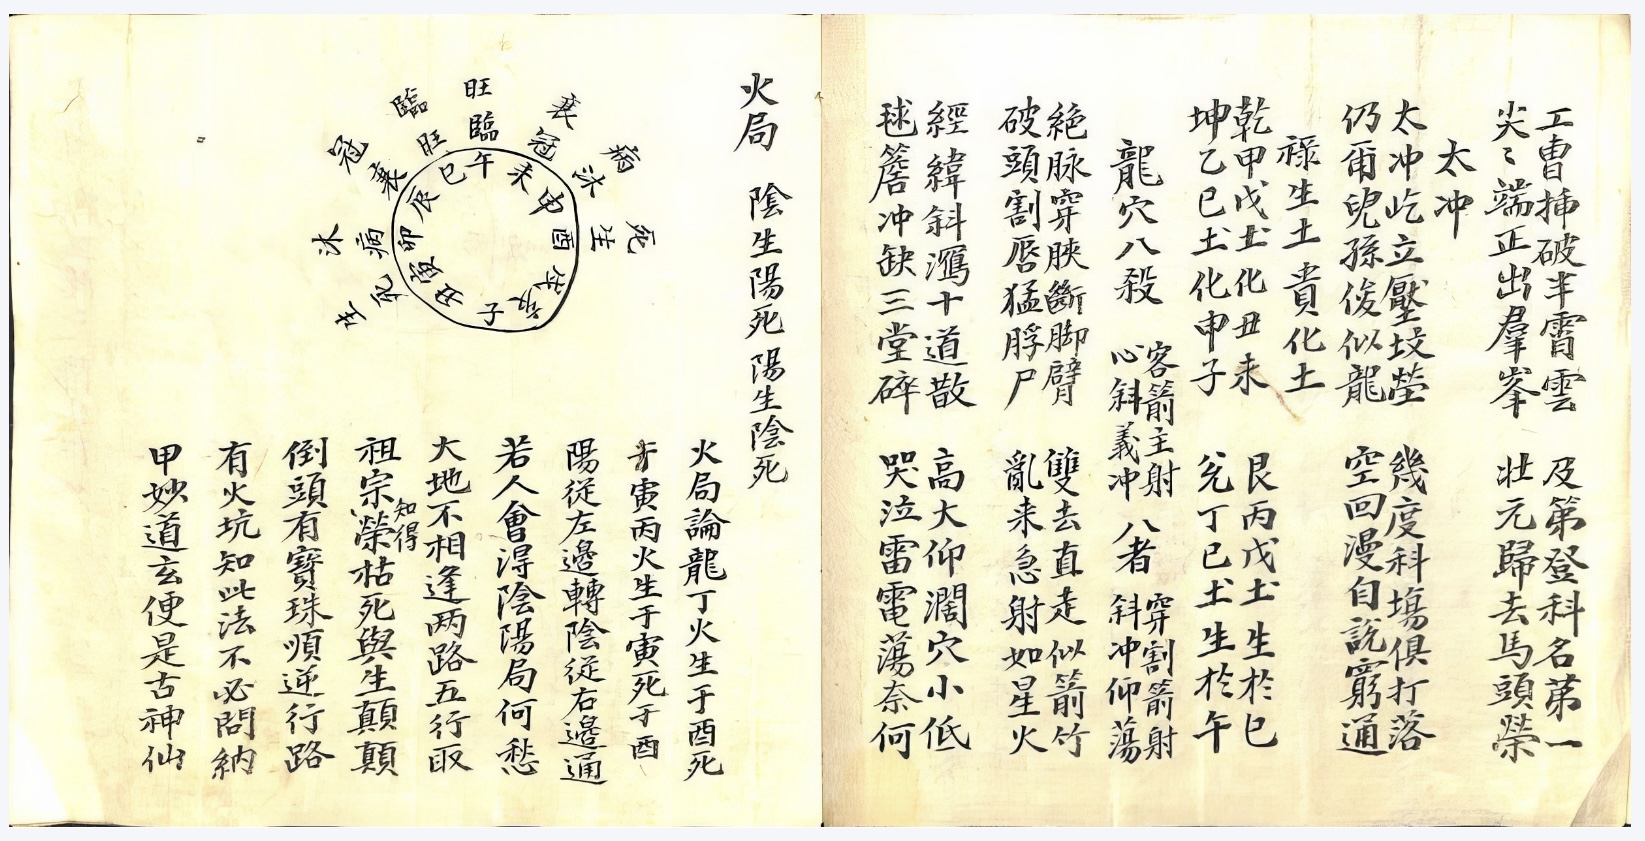 工曹挿破半霄雲　及第登科名第一
尖〻端正出羣峯　壯元歸去馬頭榮
太冲
太冲屹立壓坟塋　幾度科塲俱打落
仍爾兒孫俊似龍　空回漫自說窮通
祿生土貴化土
乾甲戊土化丑未　艮丙戊土生於巳
坤乙巳土化申子　兊丁巳土生於午
龍穴八殺　客箭主射　心斜義冲　八者　穿割箭射　斜冲仰蕩
絕脉穿腴斷脚臂　雙去直走似箭竹
破頭割唇猛脬尸　亂来急射如星火
經緯斜瀉十道散　高大仰濶穴小低
毬簷冲缺三堂碎　哭泣雷電蕩奈何
火局　陰生陽死陽生陰死
旺
臨
衰
病
死
冠
沐
生
臨
旺
冠
衰
沐
病
生
死
午
未
申
酉
戌
亥
子
丑
寅
卯
辰
巳
火局論龍丁火生于酉死
于寅丙火生于寅死于酉
陽從左邉轉陰從右邉通
若人會得陰陽局何愁
大地不相逢两路五行取
祖宗知得榮枯死與生顛顛
倒頭有寶珠順逆行路
有火坑知此法不必問納
甲妙道玄便是古神仙